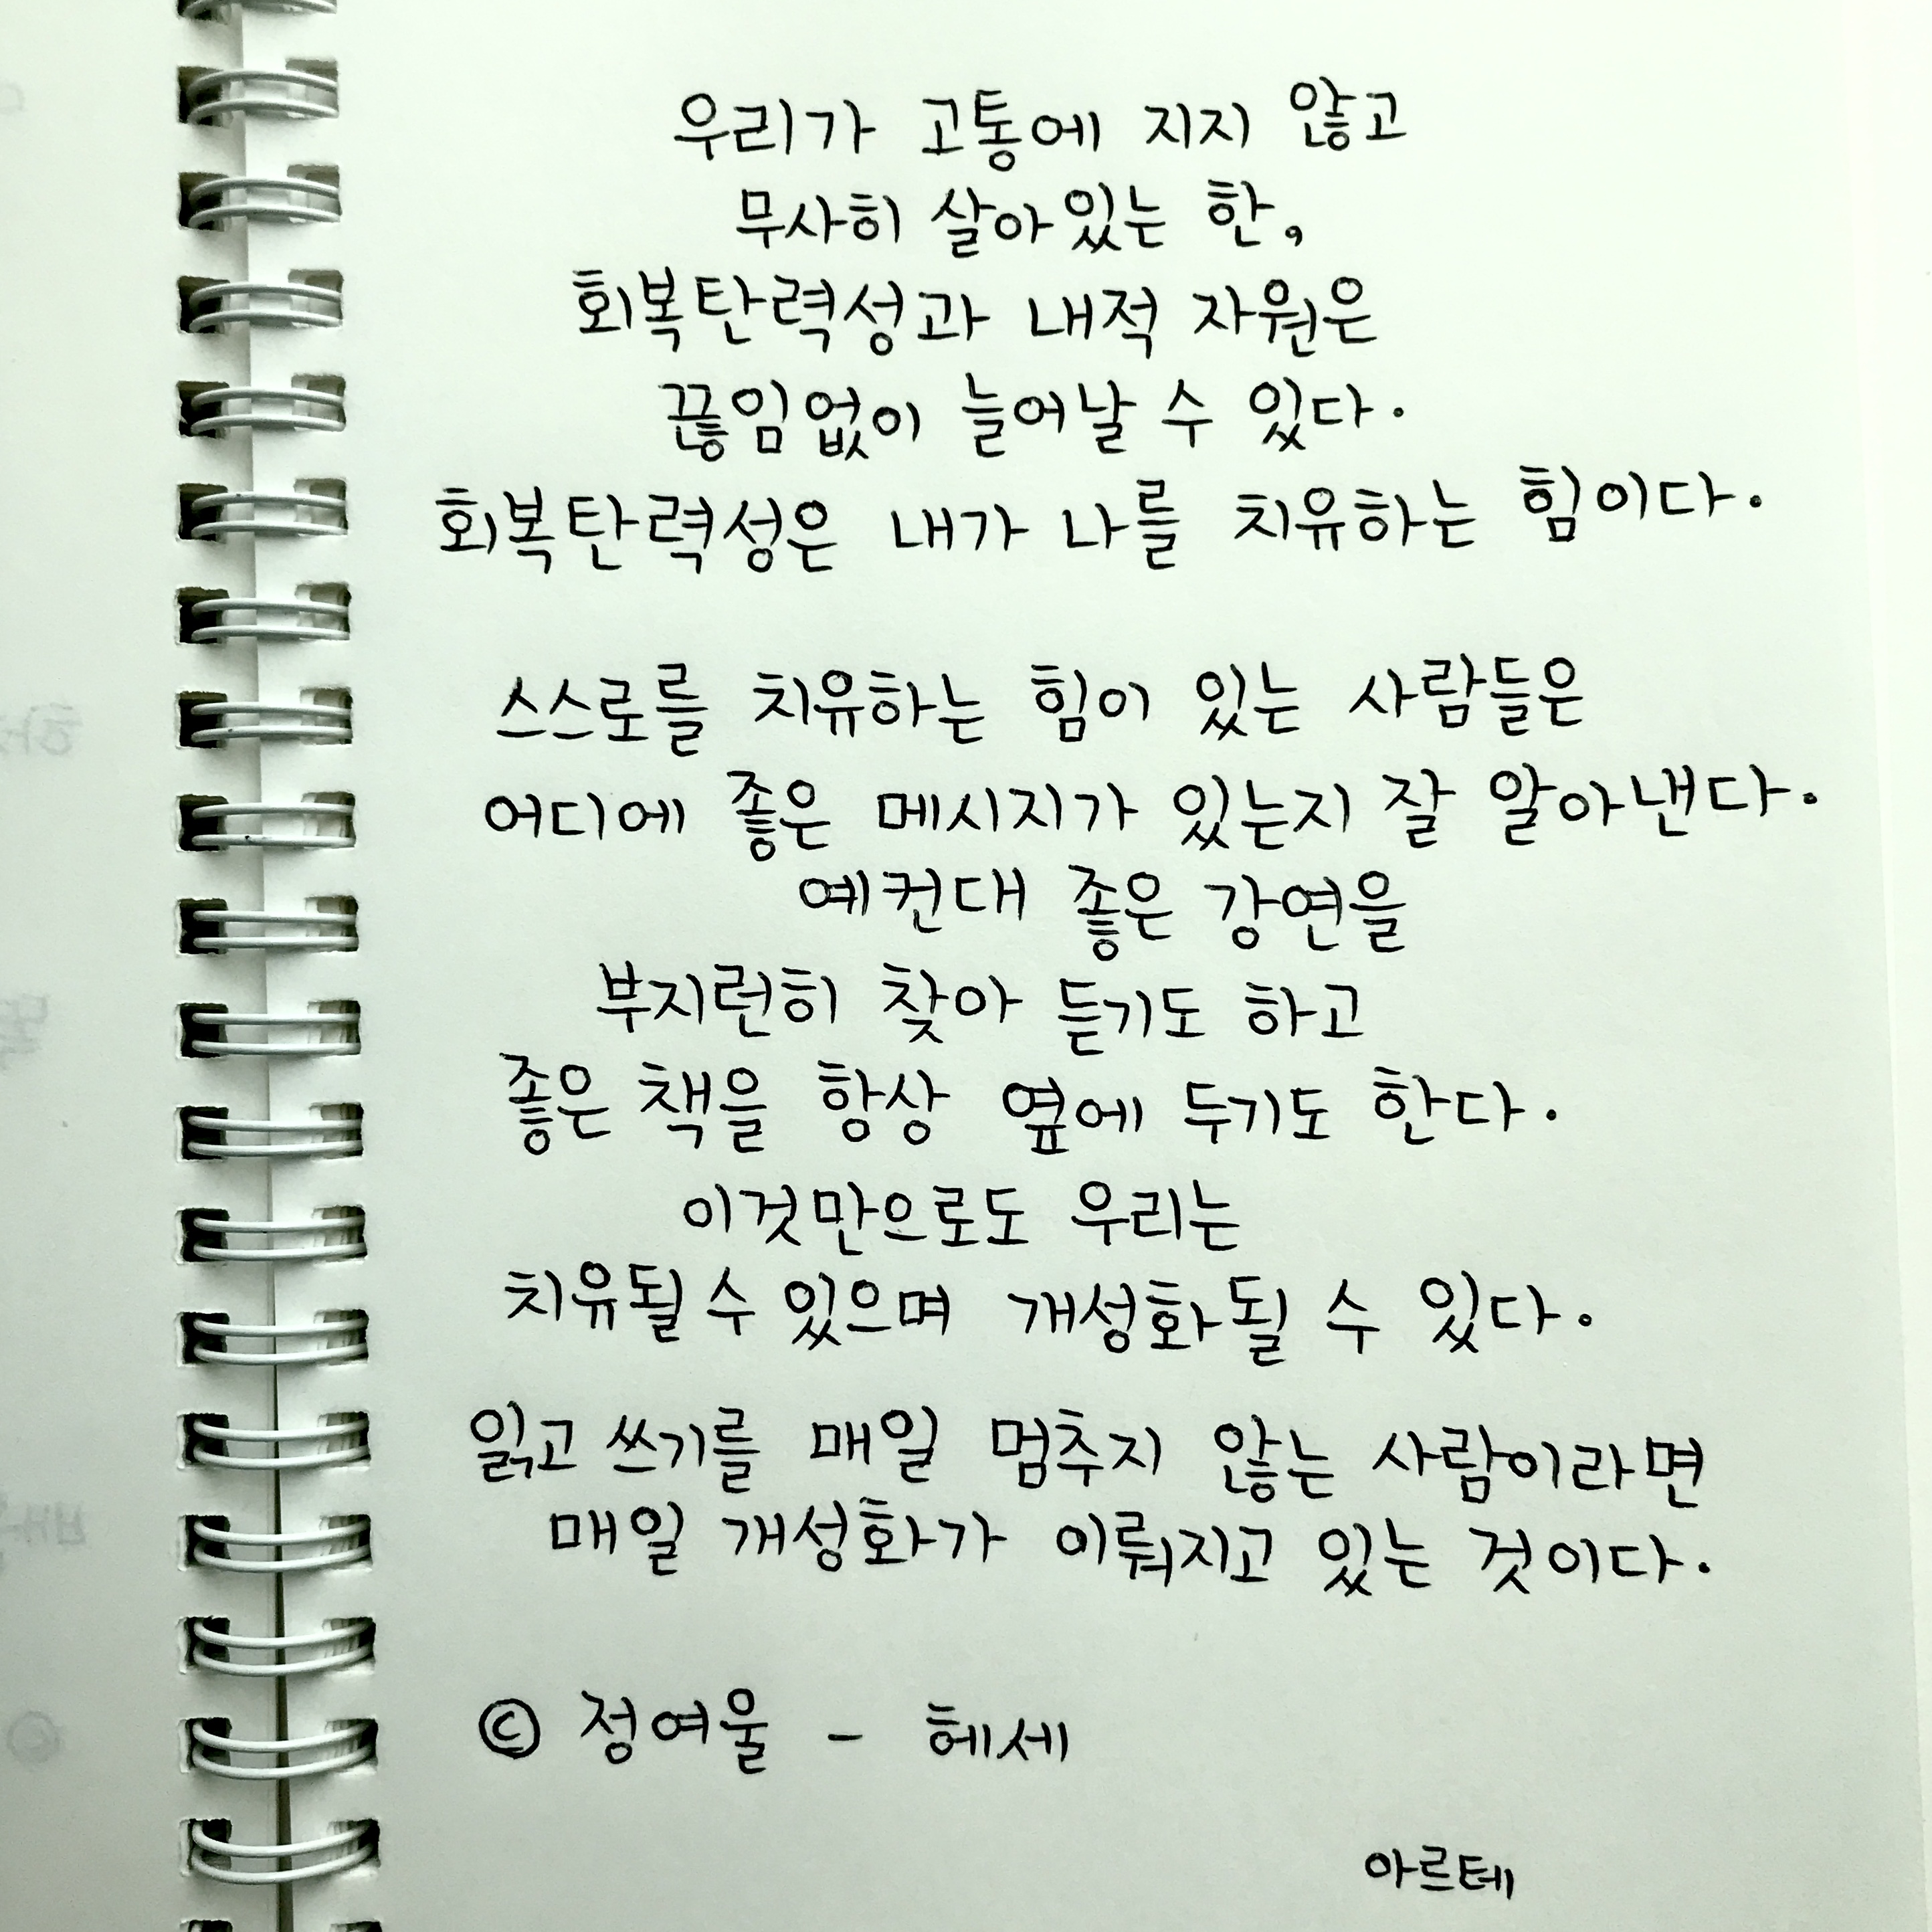 우리가 고통에 지지 않고
무사히 살아있는 한,
회복탄력성과 내적 자원은
끊임없이 늘어날 수 있다.
회복탄력성은 내가 나를 치유하는 힘이다.
스스로를 치유하는 힘이 있는 사람들은
어디에 좋은 메시지가 있는지 잘 알아낸다.
예컨대 좋은 강연을
부지런히 찾아 듣기도 하고
좋은 책을 항상 옆에 두기도 한다.
이것만으로도 우리는
치유될 수 있으며 개성화될 수 있다.
읽고 쓰기를 매일 멈추지 않는 사람이라면
매일 개성화가 이뤄지고 있는 것이다.
© 정여울 - 헤세
아르테